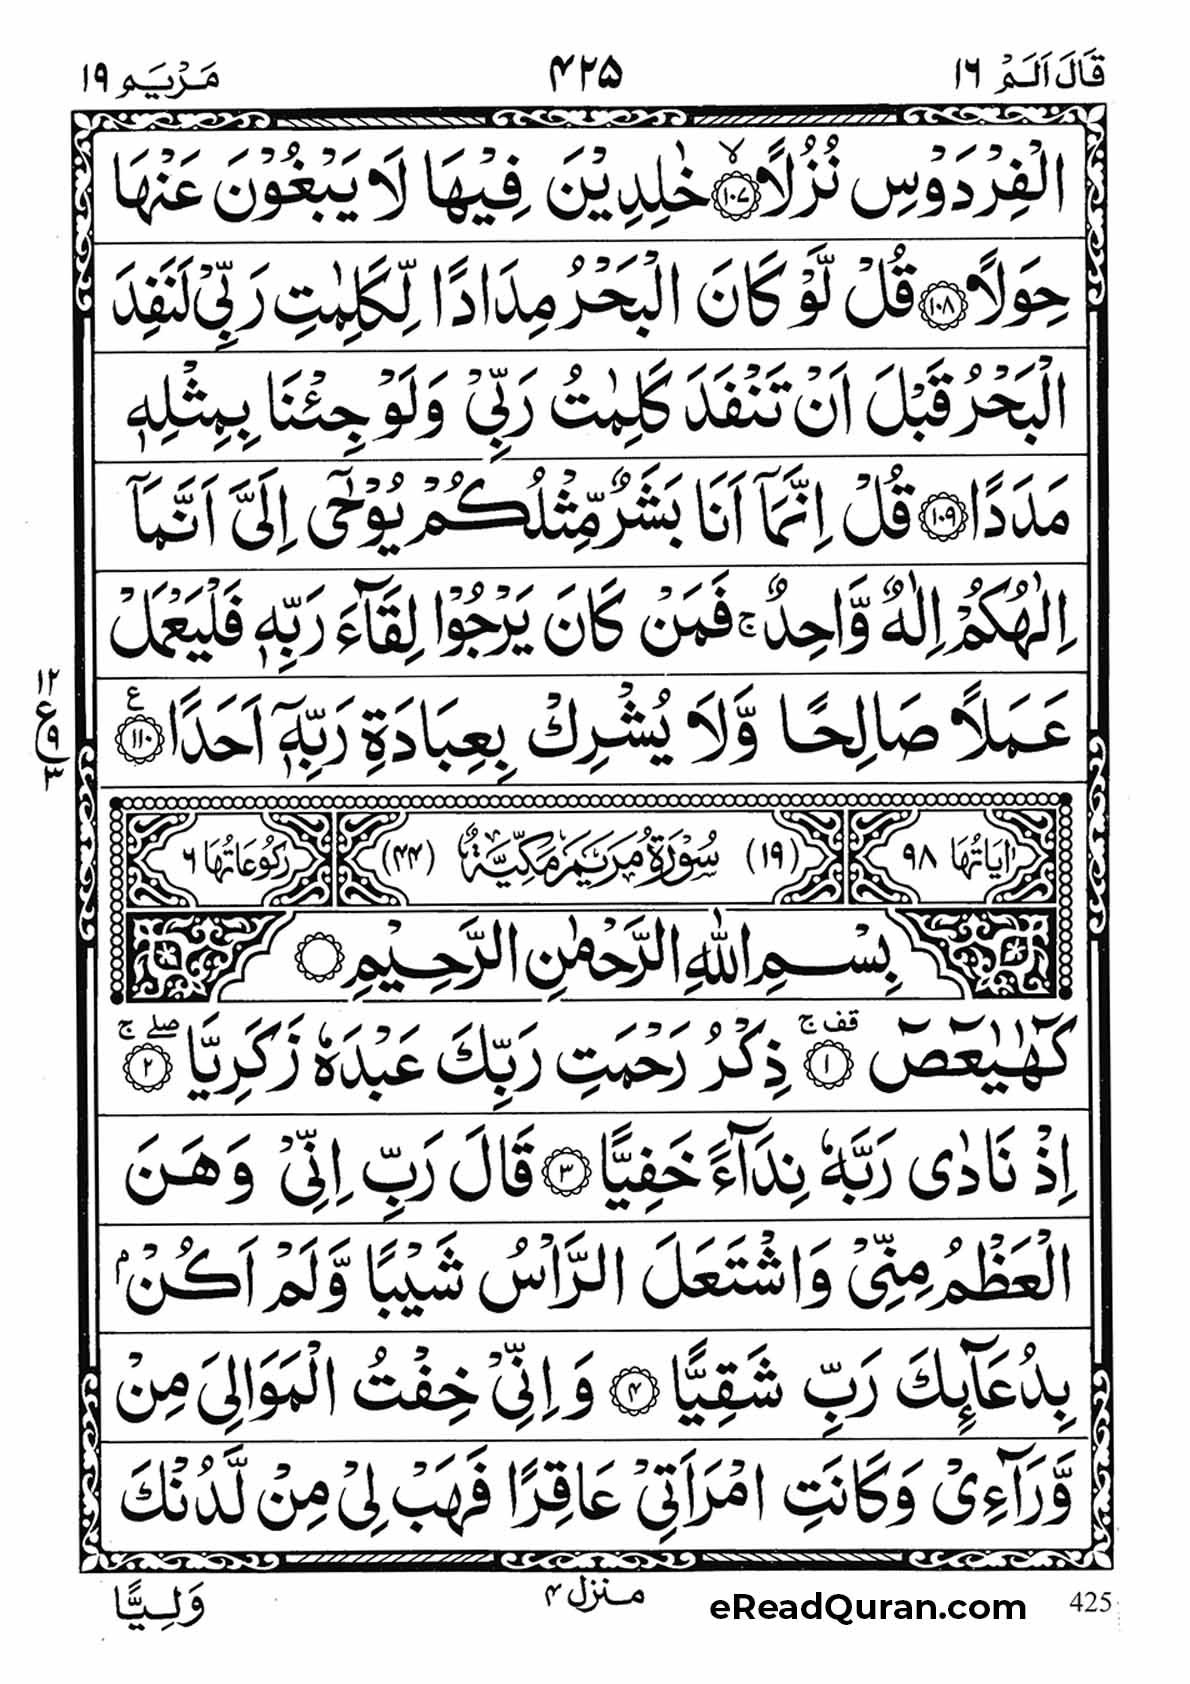 قَالَ اَلَمْ ١٦
۴۲۵
مَرْيَم ١٩
الْفِرْدَوْسِ نُزُلًا ۙ﴿١٠٧﴾ خٰلِدِيْنَ فِيْهَا لَا يَبْغُوْنَ عَنْهَا
حِوَلًا ﴿١٠٨﴾ قُلْ لَّوْ كَانَ الْبَحْرُ مِدَادًا لِّكَلِمٰتِ رَبِّيْ لَنَفِدَ
الْبَحْرُ قَبْلَ اَنْ تَنْفَدَ كَلِمٰتُ رَبِّيْ وَلَوْ جِئْنَا بِمِثْلِهٖ
مَدَدًا ﴿١٠٩﴾ قُلْ اِنَّمَاۤ اَنَا بَشَرٌ مِّثْلُكُمْ يُوْحٰۤى اِلَيَّ اَنَّمَاۤ
اِلٰهُكُمْ اِلٰهٌ وَّاحِدٌ ۚ فَمَنْ كَانَ يَرْجُوْا لِقَآءَ رَبِّهٖ فَلْيَعْمَلْ
عَمَلًا صَالِحًا وَّلَا يُشْرِكْ بِعِبَادَةِ رَبِّهٖۤ اَحَدًا ﴿١١٠﴾ ع
١٢
ع ٩
٣
اٰيَاتُهَا ٩٨
(١٩) سُوْرَةُ مَرْيَمَ مَكِّيَّةٌ (۴۴)
رُكُوْعَاتُهَا ٦
بِسْمِ اللّٰهِ الرَّحْمٰنِ الرَّحِيْمِ
كٓهٰيٰعٓصٓ ﴿١﴾ قف ج ذِكْرُ رَحْمَتِ رَبِّكَ عَبْدَهٗ زَكَرِيَّا ﴿٢﴾ صلے ج
اِذْ نَادٰى رَبَّهٗ نِدَآءً خَفِيًّا ﴿٣﴾ قَالَ رَبِّ اِنِّيْ وَهَنَ
الْعَظْمُ مِنِّيْ وَاشْتَعَلَ الرَّاْسُ شَيْبًا وَّلَمْ اَكُنْۢ
بِدُعَآئِكَ رَبِّ شَقِيًّا ﴿۴﴾ وَاِنِّيْ خِفْتُ الْمَوَالِيَ مِنْ
وَّرَآءِيْ وَكَانَتِ امْرَاَتِيْ عَاقِرًا فَهَبْ لِيْ مِنْ لَّدُنْكَ
وَلِيًّا
منزل ۴
eReadQuran.com
425